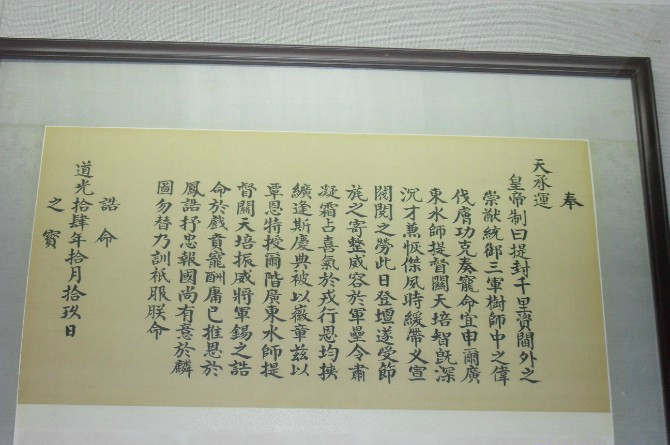 奉
天承運
皇帝制曰提封千里資閫外之
崇猷統御三軍樹師中之偉
伐膚功克奏寵命宜申爾廣
東水師提督關天培智既深
沉才兼恢傑夙時緩帶义宣
閥閱之勞此日登壇遂受節
旄之寄整威容於軍壘令肅
凝霜占喜氣於戎行恩均挾
纊逢斯慶典被以徽章茲以
覃恩特授爾階廣東水師提
督關天培振威將軍錫之誥
命於戲貢寵酬庸已推恩於
鳳誥抒忠報國尚有意於麟
圖勿替乃訓祇服朕命
誥命
道光拾肆年拾月拾玖日
之寶